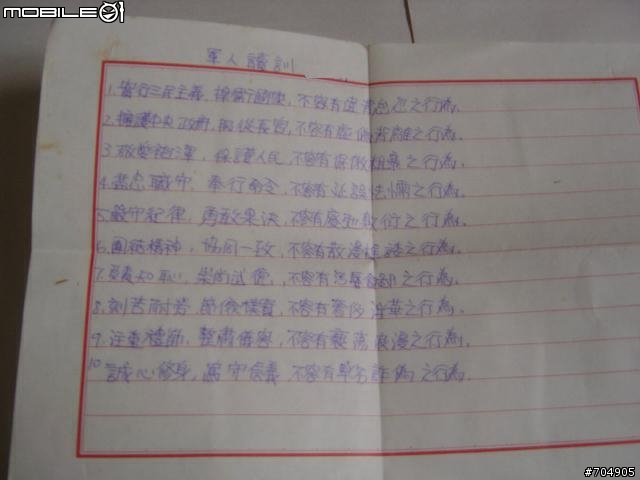 MOBILE01
軍人讀訓
1.實行三民主義,捍衛國家,不容有違背怠忽之行為.
2.擁護中央政府,服從長官,不容有虛偽背離之行為.
3.敬愛袍澤,保護人民,不容有倨傲粗暴之行為.
4.盡忠職守,奉行命令,不容有延誤怯懦之行為.
5.嚴守紀律,勇敢果決,不容有廢弛敷衍之行為.
6.團結精神,協同一致,不容有散漫推諉之行為.
7.負責知恥,崇尚武德,不容有污辱貪鄙之行為.
8.刻苦耐勞,節儉樸實,不容有奢侈浮華之行為.
9.注重禮節,整肅儀容,不容有褻蕩浪漫之行為.
10.誠心修身,篤守信義,不容有卑劣詐偽之行為.
#704905